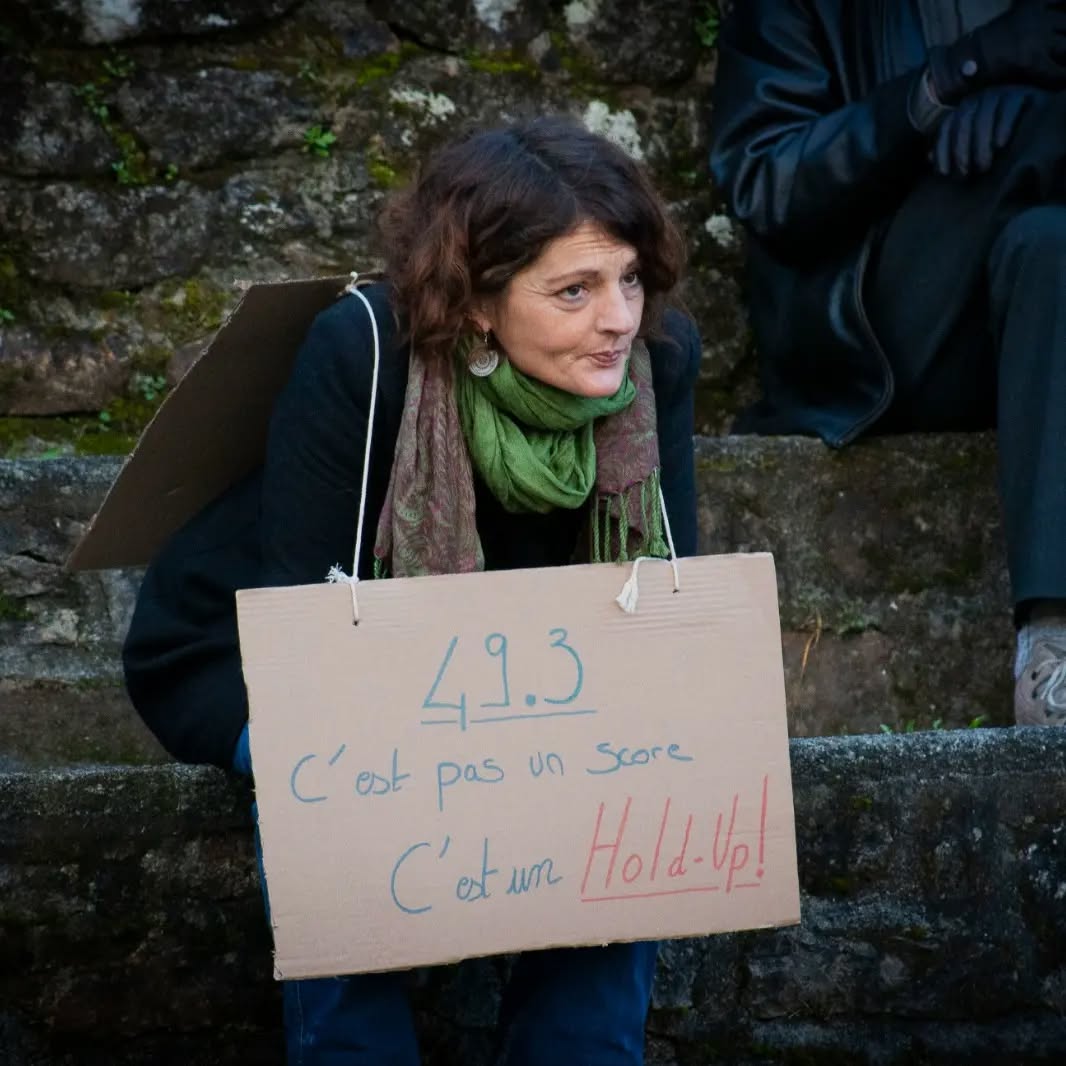 49.3
C'est pas un score
C'est un Hold-Up!